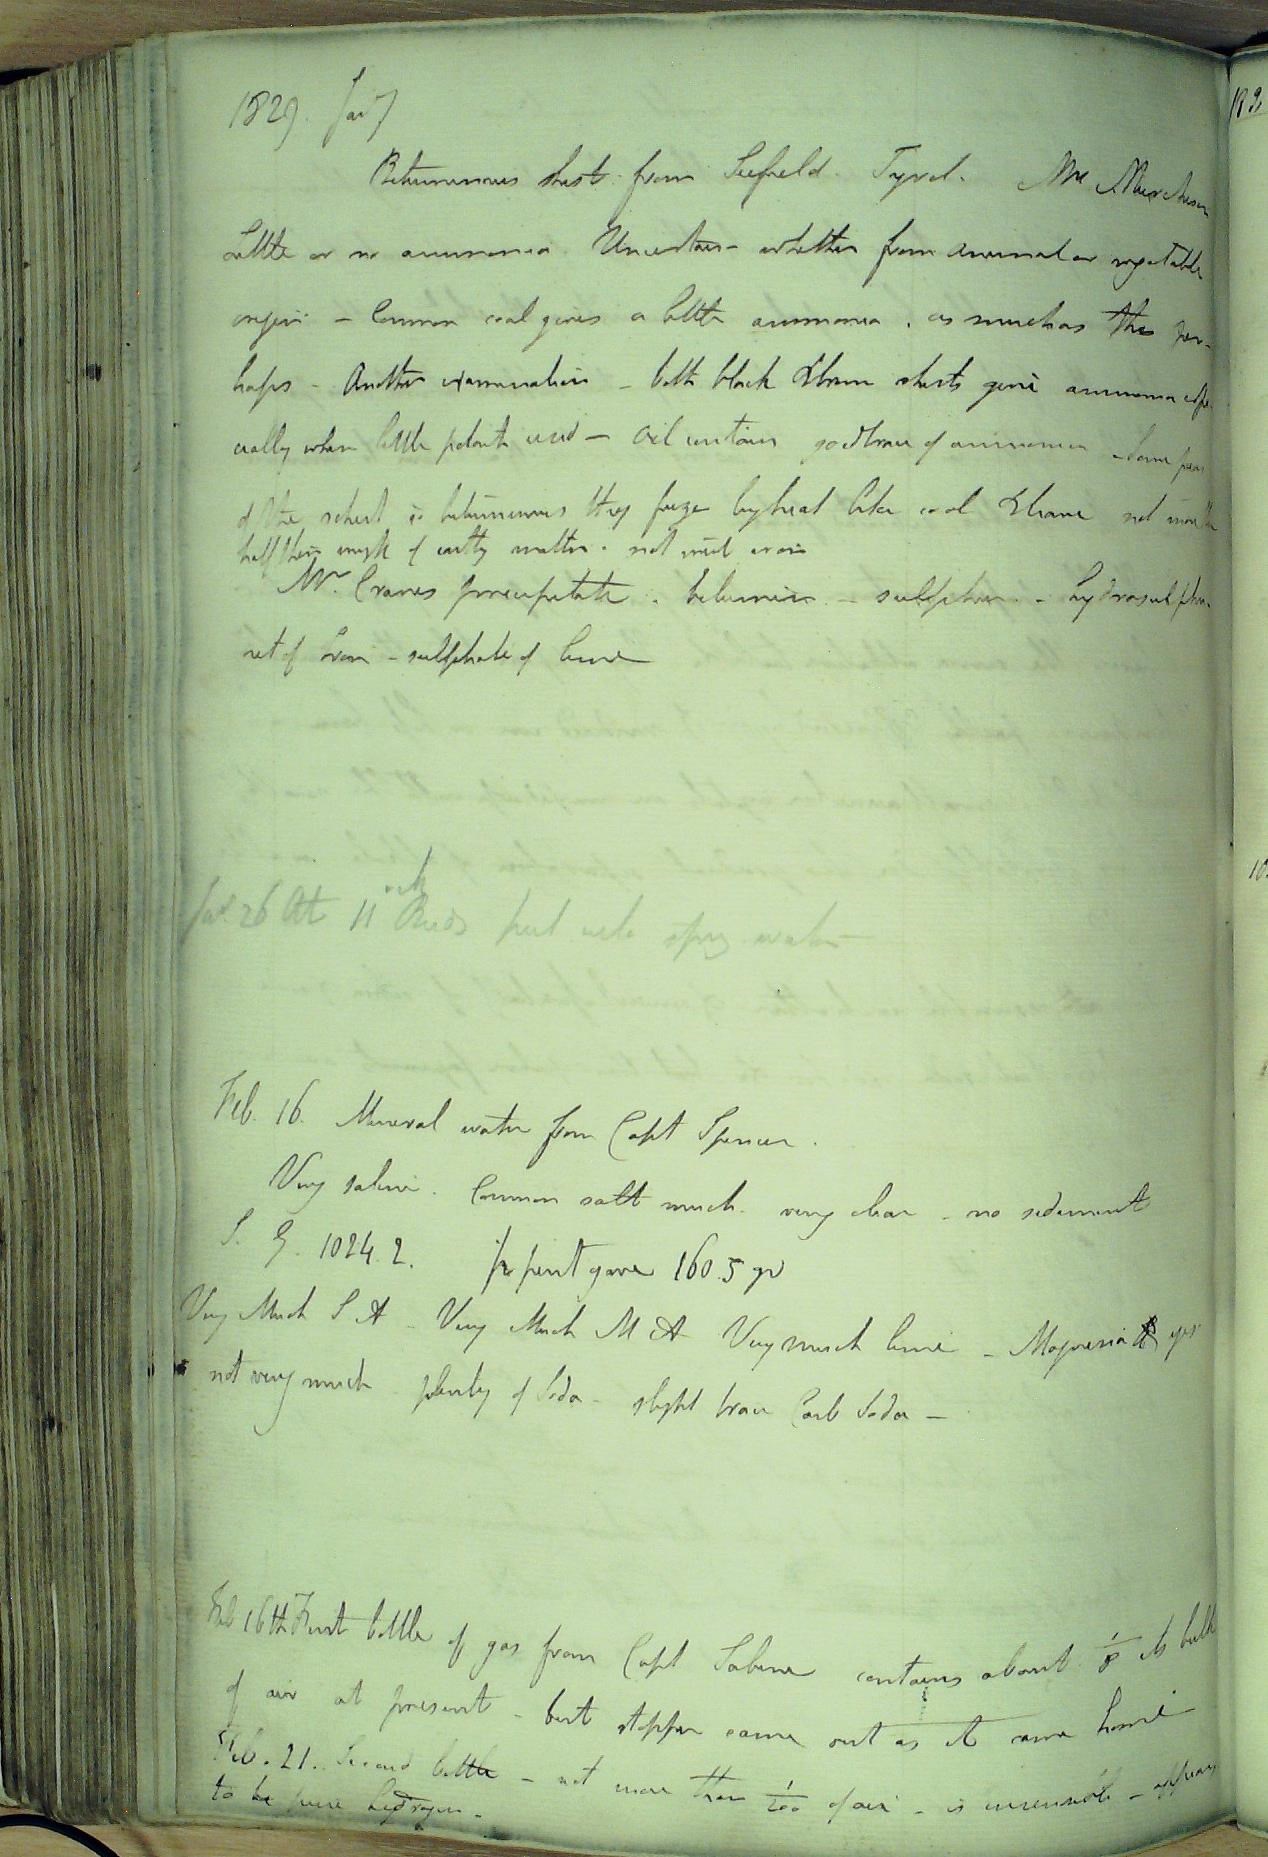 1829. Jany
Bituminous shist from Seefeld. Tyrol. Mr Murchison
Little or no ammonia. Uncertain whether from animal or vegetable
origin - Common coal gives a little ammonia. as much as this per-
haps - Another examination - both black & brown shists give ammonia espe
cially when little potash used - Oil contains good trace of ammonia - Some
of the schist so bituminous they fuze by heat like coal & leave not more than
half their weight of earthy matter. not much iron
Mr. Cranes precipitate. bitumen - sulphur - hydrosulphu-
ret of iron - sulphate of lime
Jany 26 At 11 oclk put into spring water
Feb. 16. Mineral water from Capt Spencer.
Very saline. Common salt much. very clear - no sediment
S. G. 1024.2. pr pint gave 160.5 gr
Very Much S A - Very Much M A Very much lime - Magnesia yes
not very much plenty of Soda - slight trace Carb Soda -
Feb 16th First bottle of gas from Capt Sabine contains about 1/8 its bulk
of air at present - but stopper came out as it came home
Feb. 21. Second bottle - not more than 1/200 of air - is - appears
to be pure hydrogen.
182